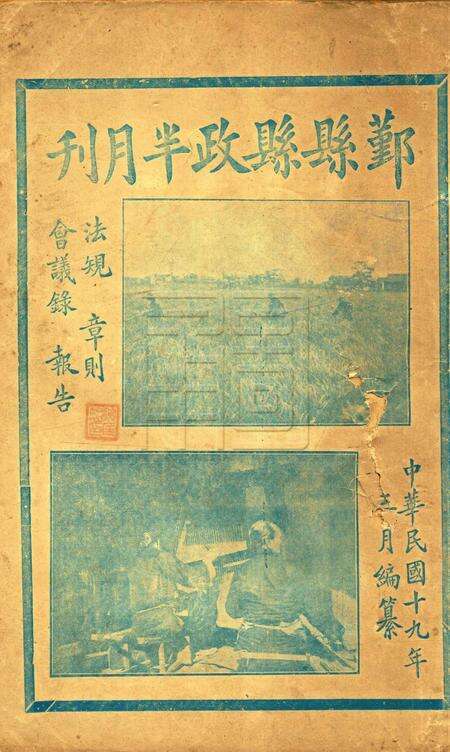 鄞縣縣政半月刊
法規 章則
會議錄 報告
中華民國十九年
三月編纂